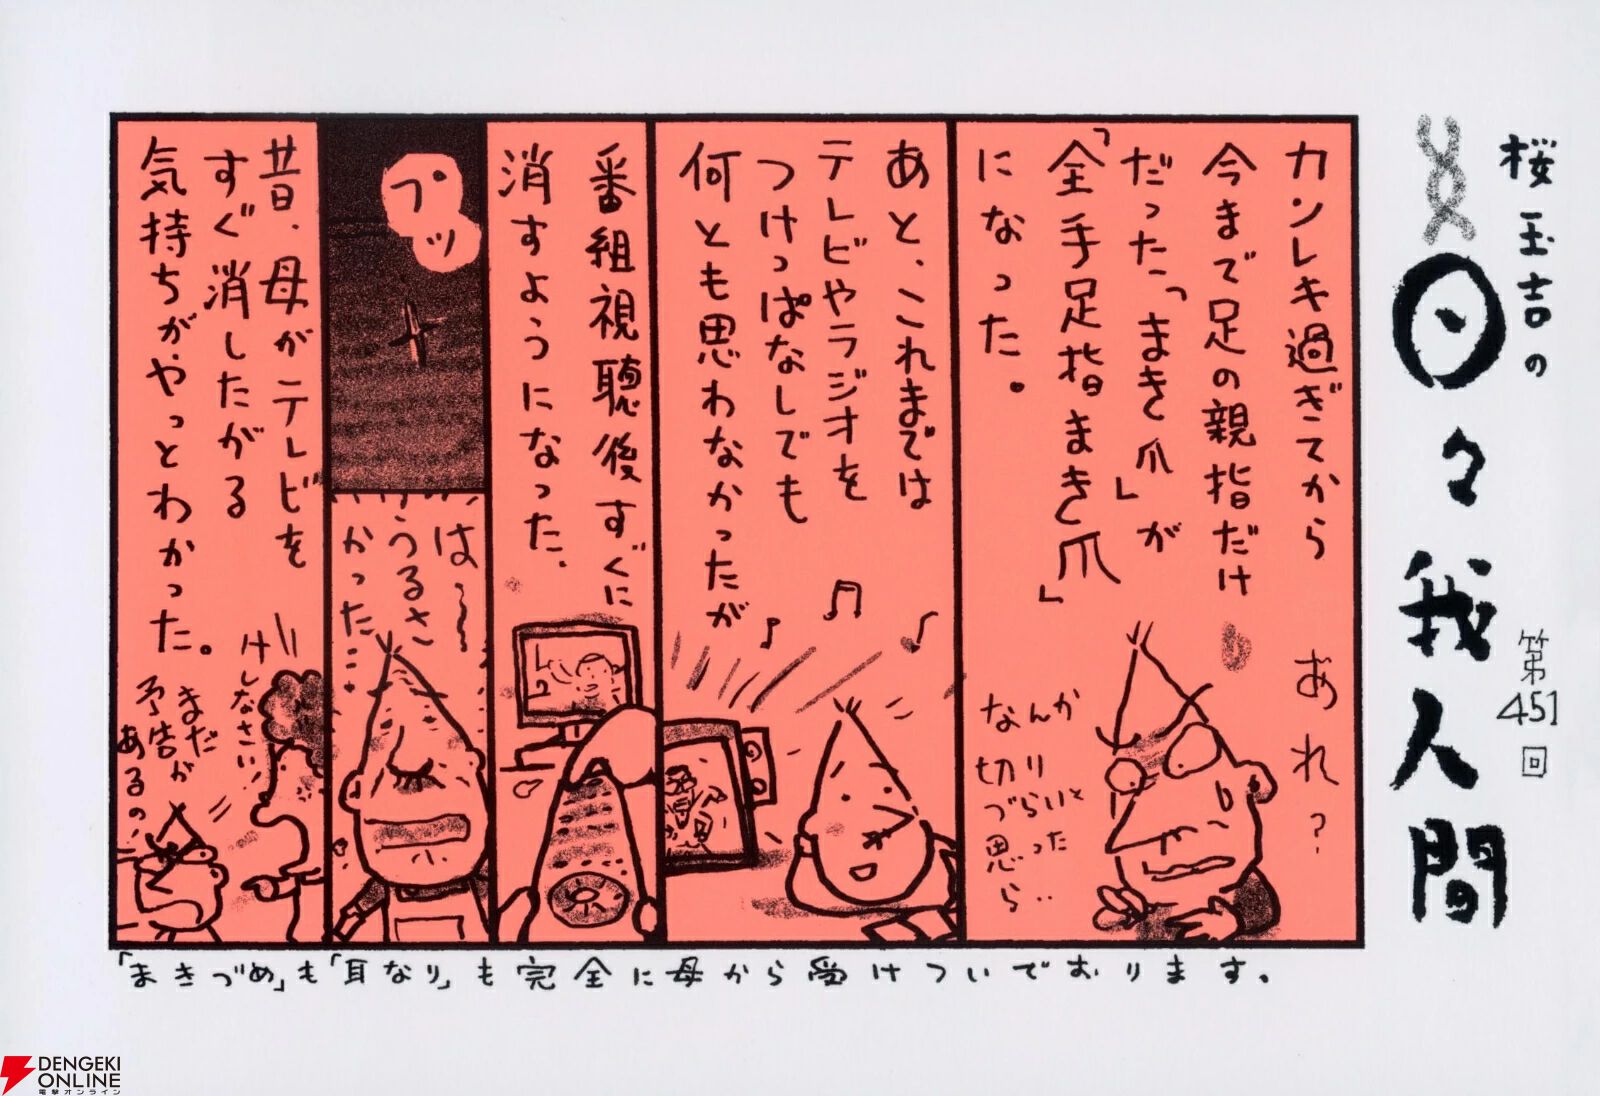 桜玉吉の
日々我人間
第451回
カンレキ過ぎてから
今まで足の親指だけ
だった「まき爪」が
「全手足指まき爪」
になった。
あれ?
なんか
切り
づらいと
思ったら‥
あと、これまでは
テレビやラジオを
つけっぱなしでも
何とも思わなかったが
番組視聴後すぐに
消すようになった.
プツ
は〜
うるさ
かった…
昔、母がテレビを
すぐ消したがる
気持ちがやっとわかった。
けしなさい!
まだ
予告が
あるの!
「まきづめ」も「耳なり」も完全に母から受けついでおります。
DENGEKI
ONLINE
電撃オンライン